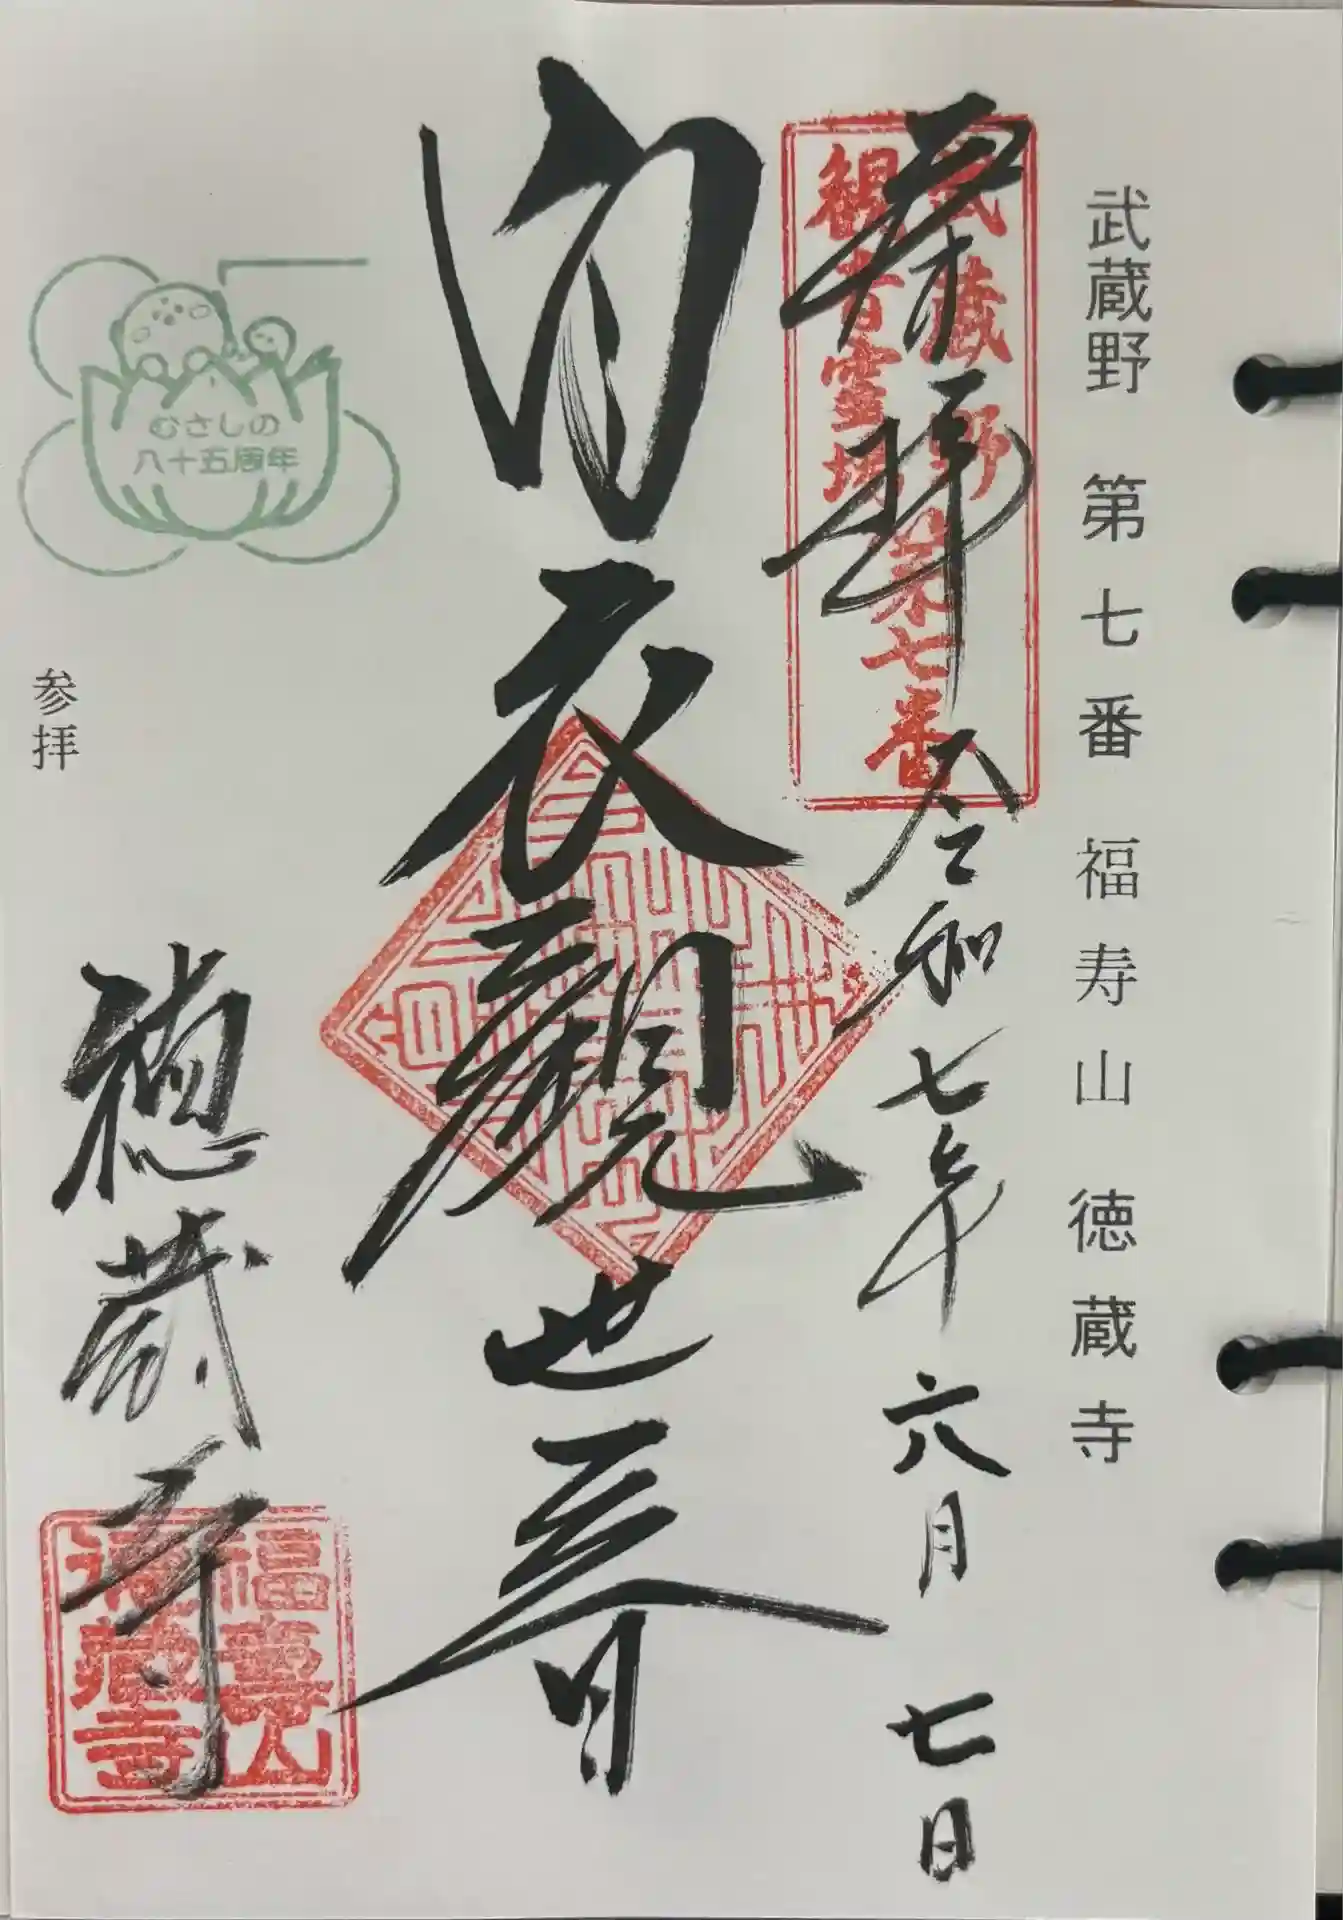 武蔵野 第七番 福寿山 徳蔵寺
武蔵野第七番
観音霊場
奉拝 令和七年 六月 七日
白衣観世音
むさしの
八十五周年
参拝
徳蔵寺
福寿山
徳蔵寺